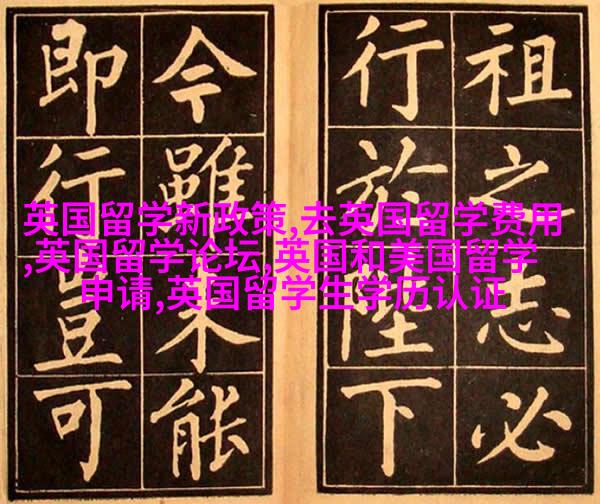 祖之志必
行於陛下
今雖未能
即行豈可
英国留学新政策,去英国留学费用
,英国留学论坛,英国和美国留学
申请,英国留学生学历认证